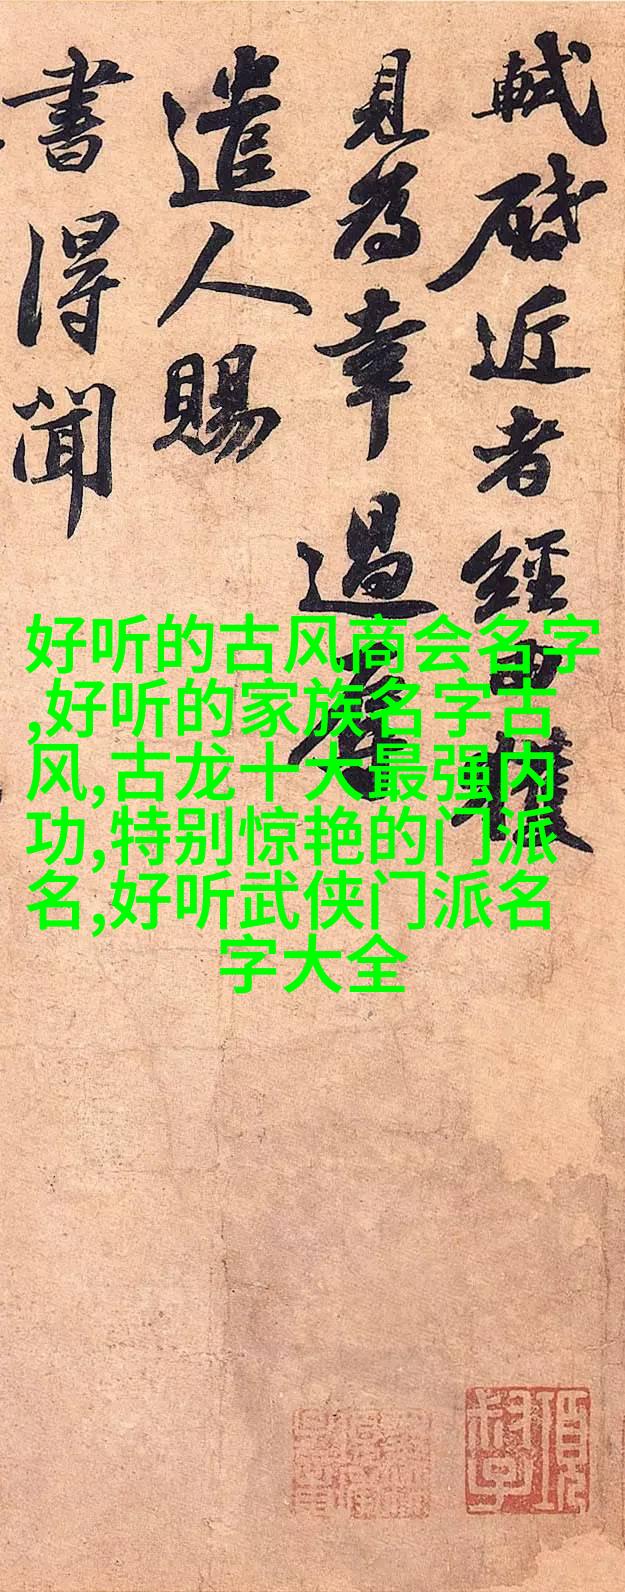 軾啓近者經由獲
見為幸過辱
遣人賜
書得聞
好听的古风商会名字
,好听的家族名字古
风,古龙十大最强内
功,特别惊艳的门派
名,好听武侠门派名
字大全